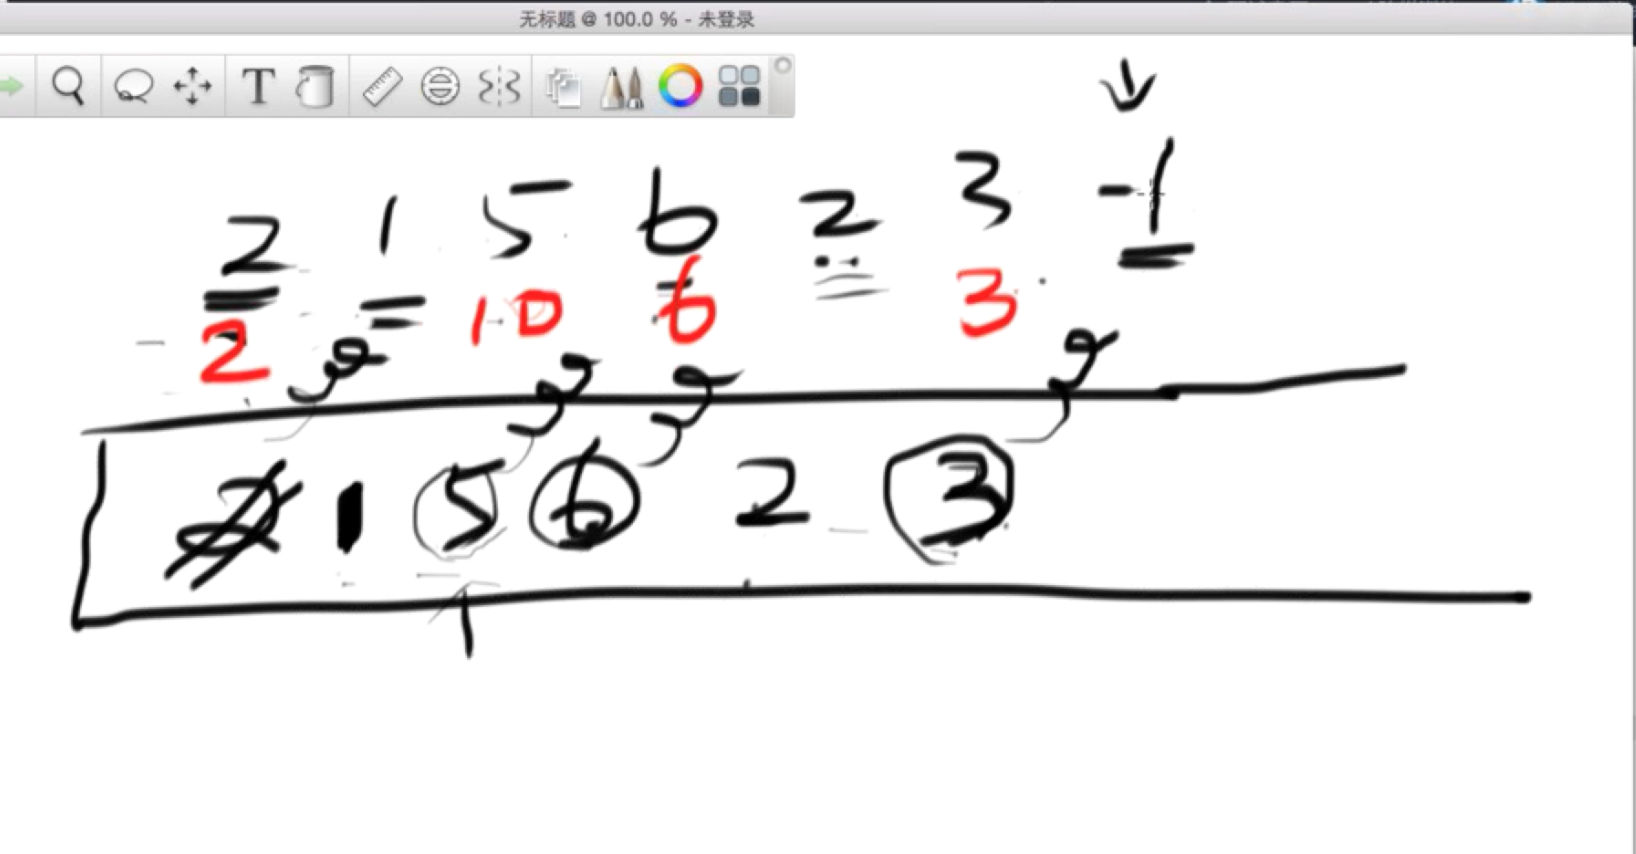 无标题 @ 100.0 % - 未登录
T
2 1 5 6 2 3 -1
2 10 6 3
2 1 5 6 2 3